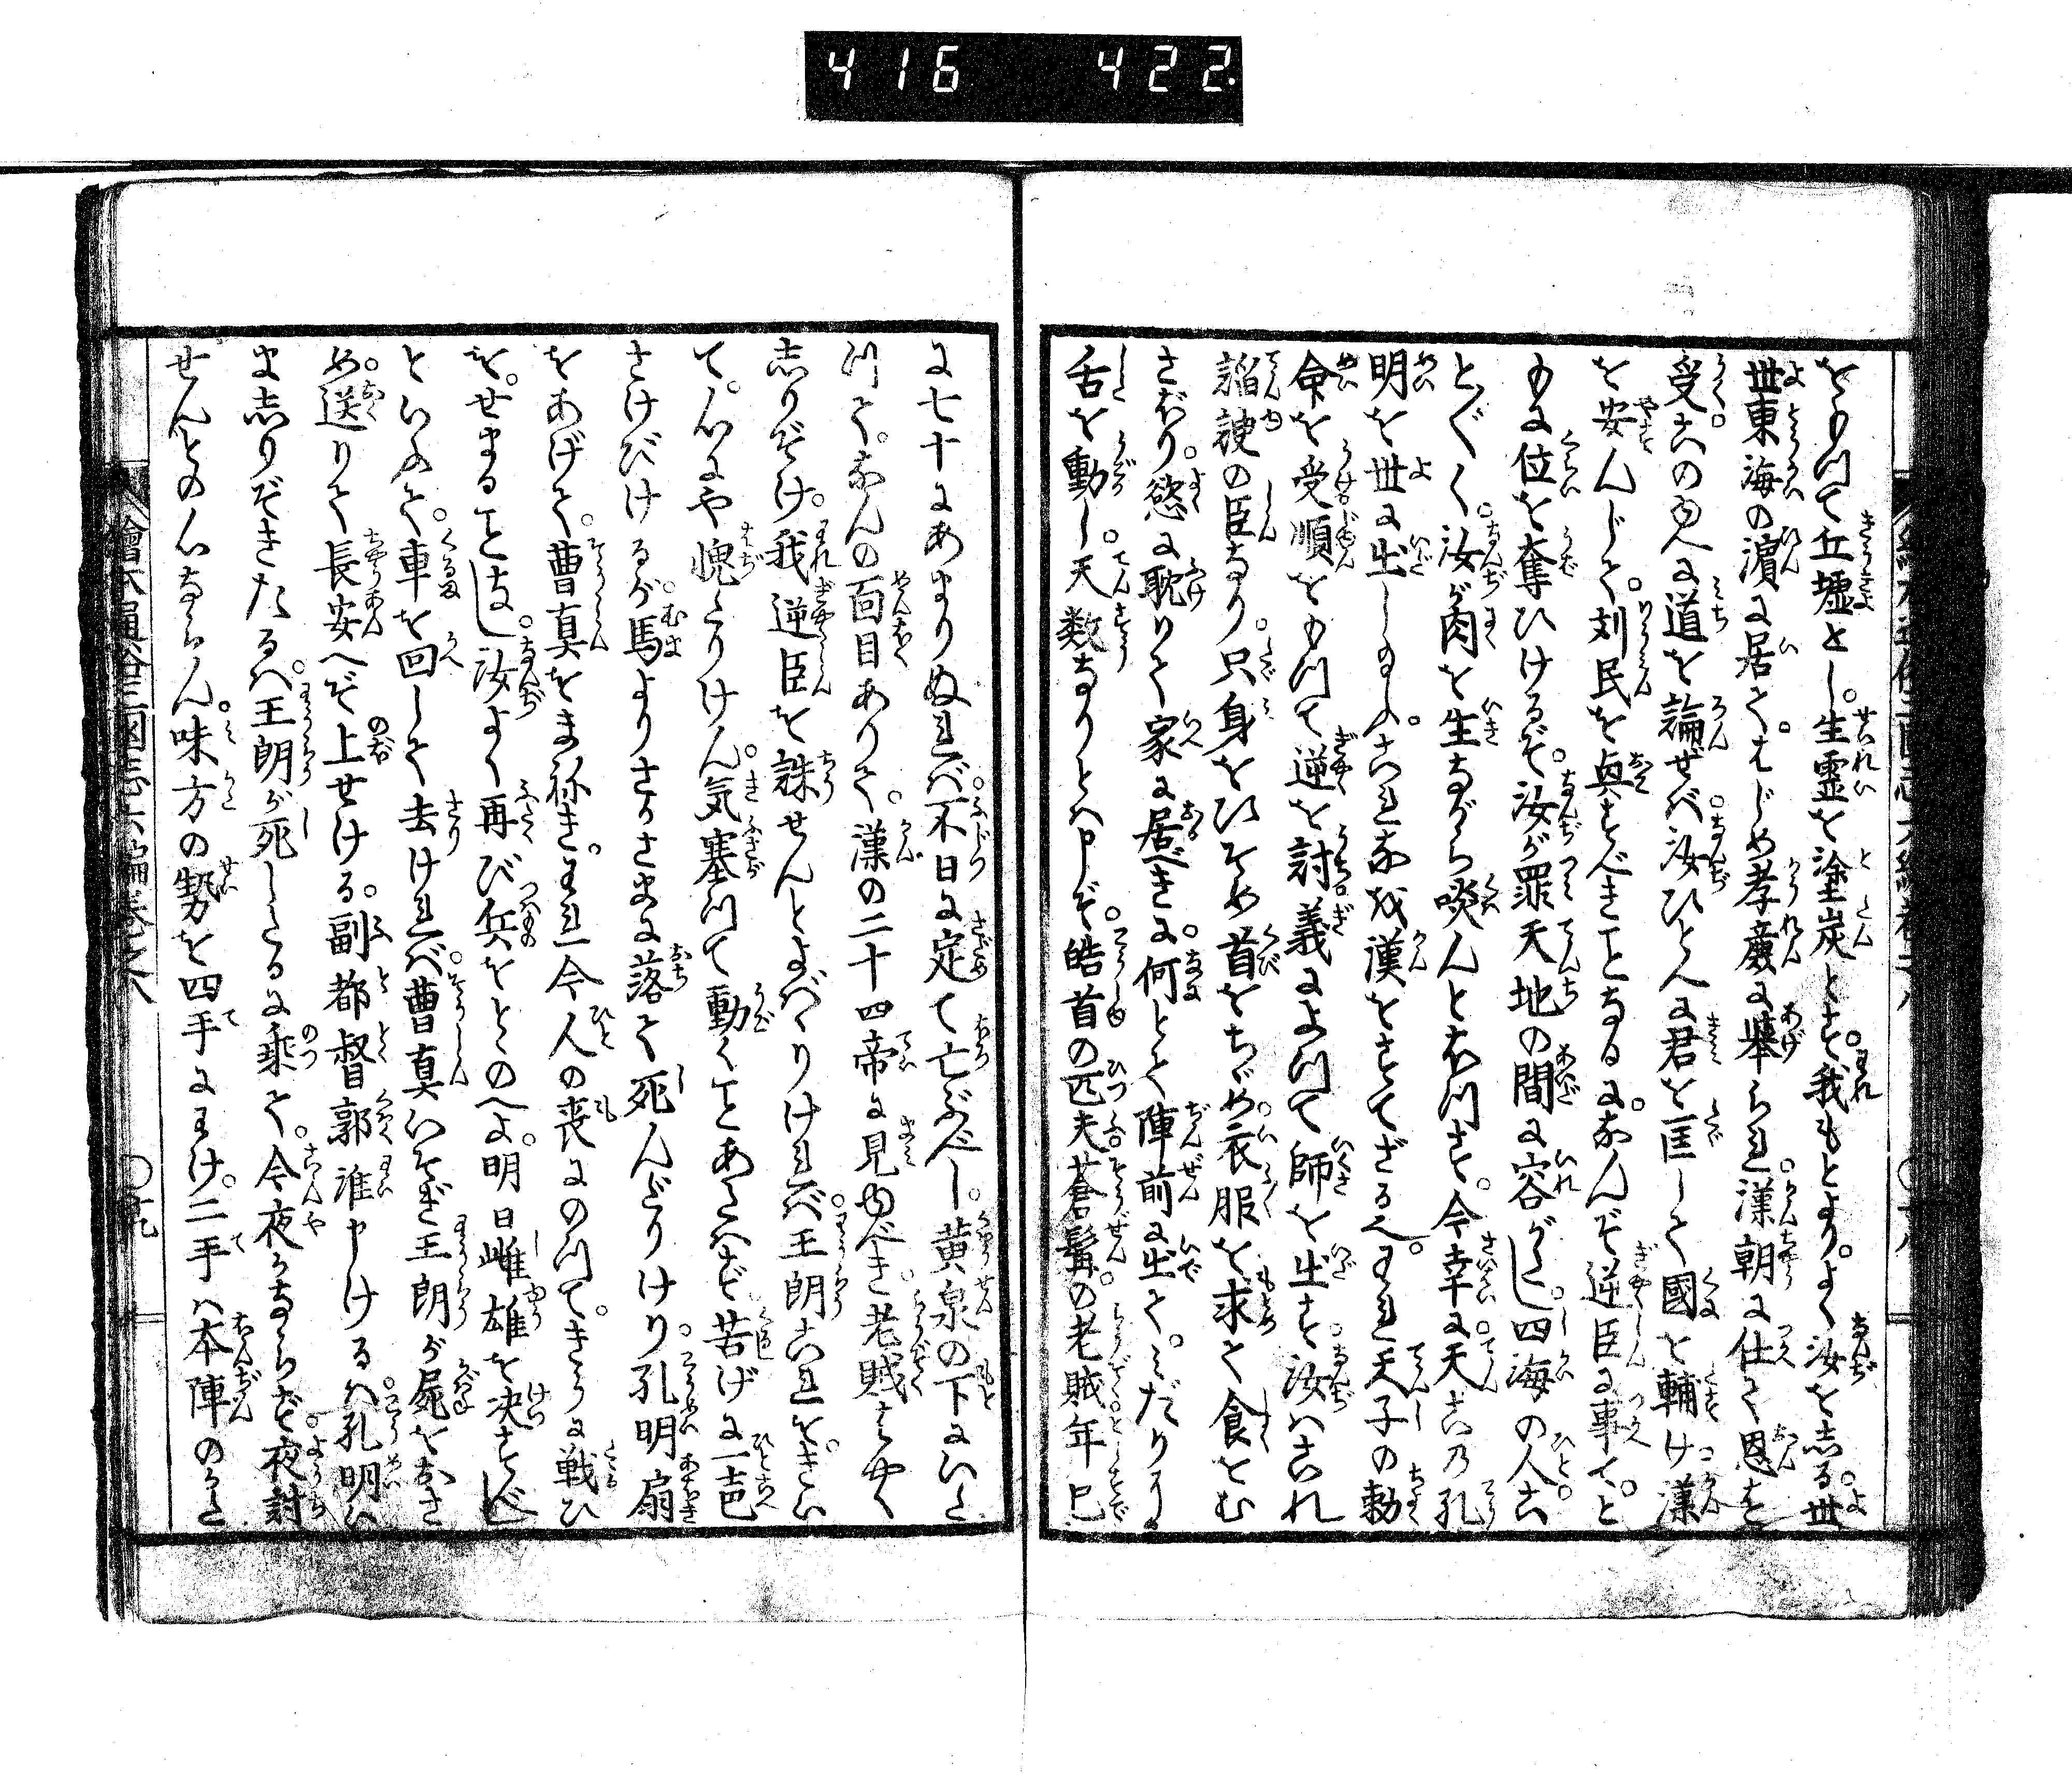 416 422
をもつて丘墟とし。生霊を塗炭とす。我もとより。よく汝を志る。世
世東海の濵に居て。はじめ孝廉に挙られ。漢朝に仕て恩を
受。この多人に道を論ぜば。汝ひと人に君を匡して國を輔け。漢
を安んじて。刘民を與すべきことなるに。なんぞ逆臣に事て。と
もに位を奪ひけるぞ。汝が罪天地の間に容がたし。四海の人こ
とごとく。汝が肉を生ながら啖んと於つす。今幸に。天この孔
明を世に出しめしハ。これなを漢をすてざる也。われ天子の勅
命を受。順をもつて逆を討。義によつて師を出す。汝ハこれ
謟諛の臣なり。只身をひそめ首をちゞめ。衣服を求て食をむ
さぼり。慾に耽りて家に居べきに。何とて陣前に出て。みだりに
舌を動し。天数なりとハ申ぞ。皓首の匹夫。蒼髯の老賊。年已
に七十にあまりぬれバ。不日に定て亡ぶべし。黄泉の下にいた
つて。なんの面目ありて。漢の二十四帝に見ゆべき。老賊はやく
志りぞけ。我逆臣を誅せんとよばハりけれバ。王朗これをきい
て。心にや愧たりけん。気塞つて動くことあたハず。苦げに一声
さけびけるが。馬よりさかさまに落て死んだりけり。孔明扇
をあげて。曹真をまねき。われ今人の喪にのつて。きうに戦ひ
を。せまることはなし。汝よく再び兵をとゝのへよ。明日雌雄を決すべし
といふて。車を回して去けれバ。曹真いそぎ王朗が屍をおさ
め。送りて長安へぞ上せける。副都督郭淮申けるハ。孔明い
ま志りぞきたるハ。王朗が死したるに乗て。今夜かならず夜討
せんとの心ならん。味方の勢を四手にわけ。二手ハ本陣のかた
繪本通俗三國志六編巻之八 〇十九